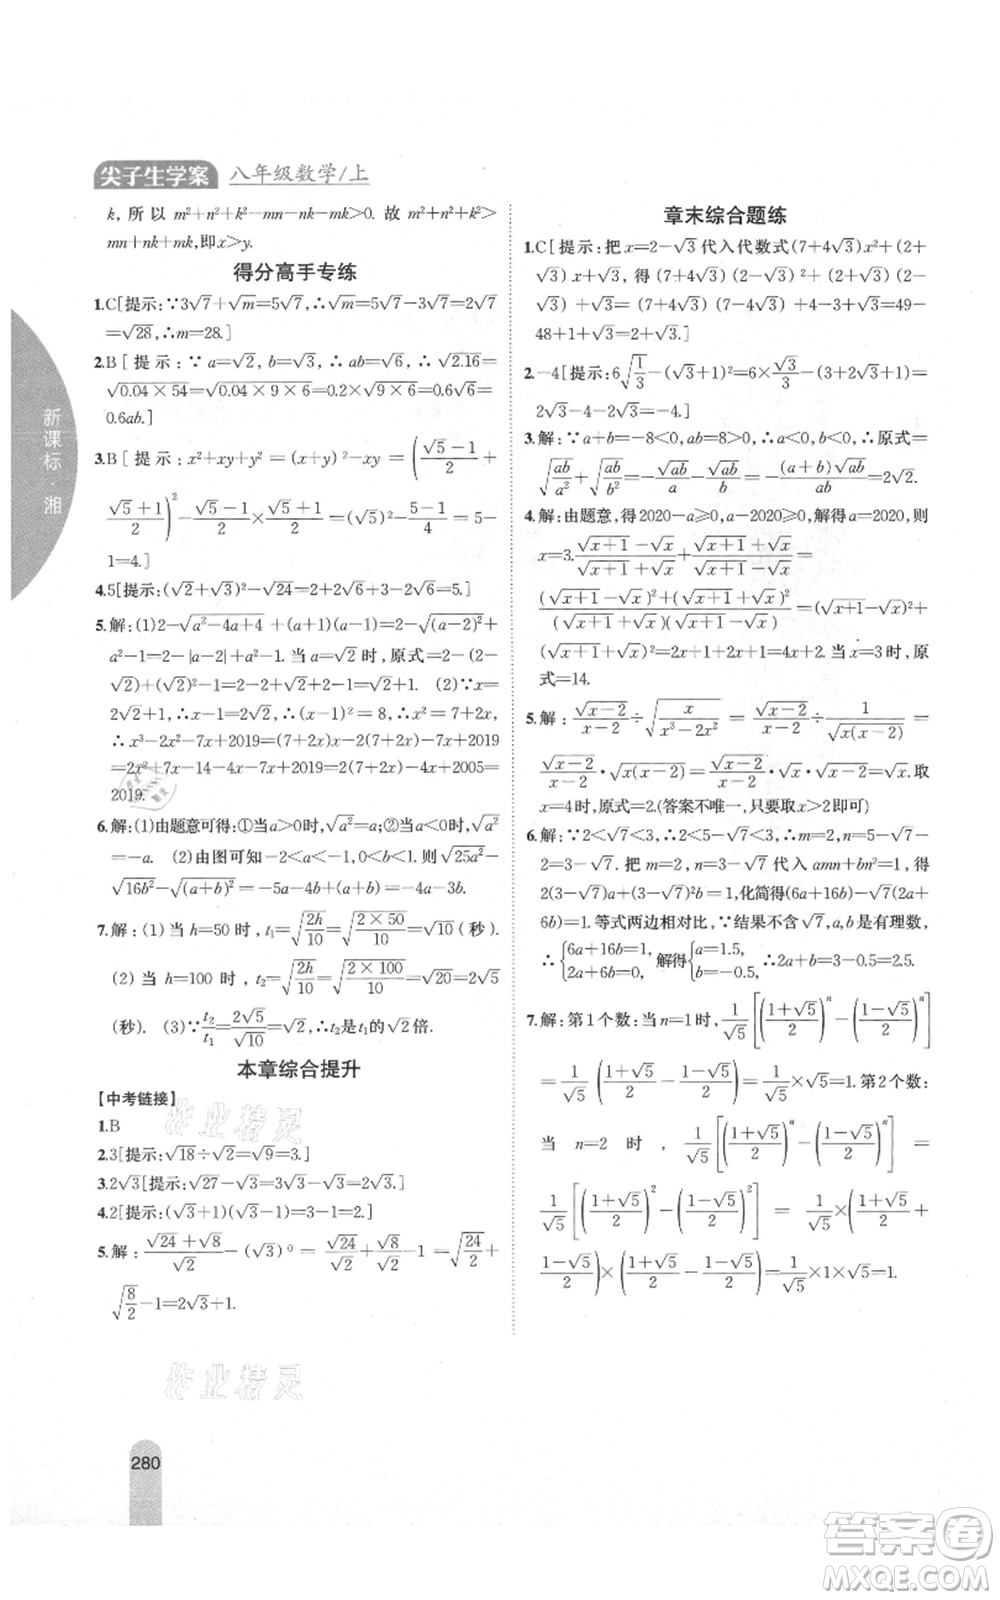 尖子生学案 八年级数学/上
k,所以m²+n²+k²-mn-nk-mk>0.故m²+n²+k²>
mn+nk+mk,即x>y.
得分高手专练
1.C[提示:∵3√7+√m=5√7,∴√m=5√7-3√7=2√7
=√28,∴m=28.]
2.B[提示:∵a=√2,b=√3,∴ab=√6,∴√2.16=
√0.04×54=√0.04×9×6=0.2×3×√6=0.6√6=
0.6ab.]
3.B[提示:x²+xy+y²=(x+y)²-xy=((√5-1)/2+
(√5+1)/2)²-(√5-1)/2×(√5+1)/2=(√5)²-(5-1)/4=5-
1=4.]
4.5[提示:(√2+√3)²-√24=2+2√6+3-2√6=5.]
5.解:(1)2-√(a²-4a+4)+(a+1)(a-1)=2-√(a-2)²+
a²-1=2-|a-2|+a²-1.当a=√2时,原式=2-(2-
√2)+(√2)²-1=2-2+√2+2-1=√2+1. (2)∵x=
2√2+1,∴x-1=2√2,∴(x-1)²=8,∴x²=7+2x,
∴x³-2x²-7x+2019=(7+2x)x-2(7+2x)-7x+2019
=2x²+7x-14-4x-7x+2019=2(7+2x)-4x+2005=
2019.
6.解:(1)由题意可得:①当a>0时,√a²=a;②当a<0时,√a²
=-a. (2)由图可知-2<a<-1,0<b<1.则√25a²-
√16b²-√(a+b)²=-5a-4b+a+b=-4a-3b.
7.解:(1)当h=50时,t₁=√(2h/10)=√((2×50)/10)=√10(秒).
(2)当h=100时,t₂=√(2h/10)=√((2×100)/10)=√20=2√5
(秒). (3)∵t₂/t₁=2√5/√10=√2,∴t₂是t₁的√2倍.
本章综合提升
【中考链接】
1.B
2.3[提示:√18÷√2=√9=3.]
3.2√3[提示:√27-√3=3√3-√3=2√3.]
4.2[提示:(√3+1)(√3-1)=3-1=2.]
5.解:(√24+√8)/√2-(√3)⁰=√24/√2+√8/√2-1=√(24/2)+
√(8/2)-1=2√3+1.
章末综合题练
1.C[提示:把x=2-√3代入代数式(7+4√3)x²+(2+
√3)x+√3,得(7+4√3)(7-4√3)+4-3+√3=49-
48+1+√3=2+√3.]
2.-4[提示:6√(1/3)-(√3+1)²=6×√3/3-(3+2√3+1)=
2√3-2√3-4=-4.]
3.解:∵a+b=-8<0,ab=8>0,∴a<0,b<0,∴原式=
√(ab/a²)+√(ab/b²)=-√ab/a-√ab/b=-(a+b)√ab/ab=2√2.
4.解:由题意,得2020-a≥0,a-2020≥0,解得a=2020,则
x=3.(√(x+1)-√x)/(√(x+1)+√x)+(√(x+1)+√x)/(√(x+1)-√x)=
(√(x+1)-√x)²/((√(x+1)+√x)(√(x+1)-√x))+(√(x+1)+√x)²=(√(x+1)+
√x)²+(√(x+1)-√x)²=2x+1+2x+1=4x+2.当x=3时,原
式=14.
5.解:√(x-2)/(x-2)÷√(x/(x³-2x²))=√(x-2)/(x-2)÷1/√(x(x-2))=
√(x-2)/(x-2)·√(x(x-2))=√(x-2)/(x-2)·√x·√(x-2)=√x.取
x=4时,原式=2.(答案不唯一,只要取x>2即可)
6.解:∵2<√7<3,∴2<5-√7<3,∴m=2,n=5-√7-
2=3-√7.把m=2,n=3-√7代入amn+bn²=1,得
2(3-√7)a+(3-√7)²b=1,化简得(6a+16b)-√7(2a+
6b)=1.等式两边相对比,∵结果不含√7,a,b为有理数,
∴{6a+16b=1, 2a+6b=0, 解得{a=1.5, b=-0.5, ∴2a+b=3-0.5=2.5.
7.解:第1个数:当n=1时,1/√5[((1+√5)/2)ⁿ-((1-√5)/2)ⁿ]
=1/√5((1+√5)/2-(1-√5)/2)=1/√5×√5=1.第2个数:
当n=2时,1/√5[((1+√5)/2)ⁿ-((1-√5)/2)ⁿ]=
1/√5[((1+√5)/2)²-((1-√5)/2)²]=1/√5×((1+√5)/2+
(1-√5)/2)((1+√5)/2-(1-√5)/2)=1/√5×1×√5=1.
新课标·湘
作业精灵
作业精灵
280
答案圈
MXQE.COM